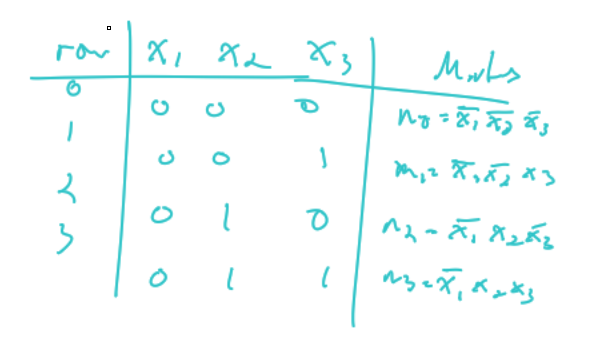 row x₁ x₂ x₃ Minterms
0 0 0 0 m₀ = x̅₁ x̅₂ x̅₃
1 0 0 1 m₁ = x̅₁ x̅₂ x₃
2 0 1 0 m₂ = x̅₁ x₂ x̅₃
3 0 1 1 m₃ = x̅₁ x₂ x₃